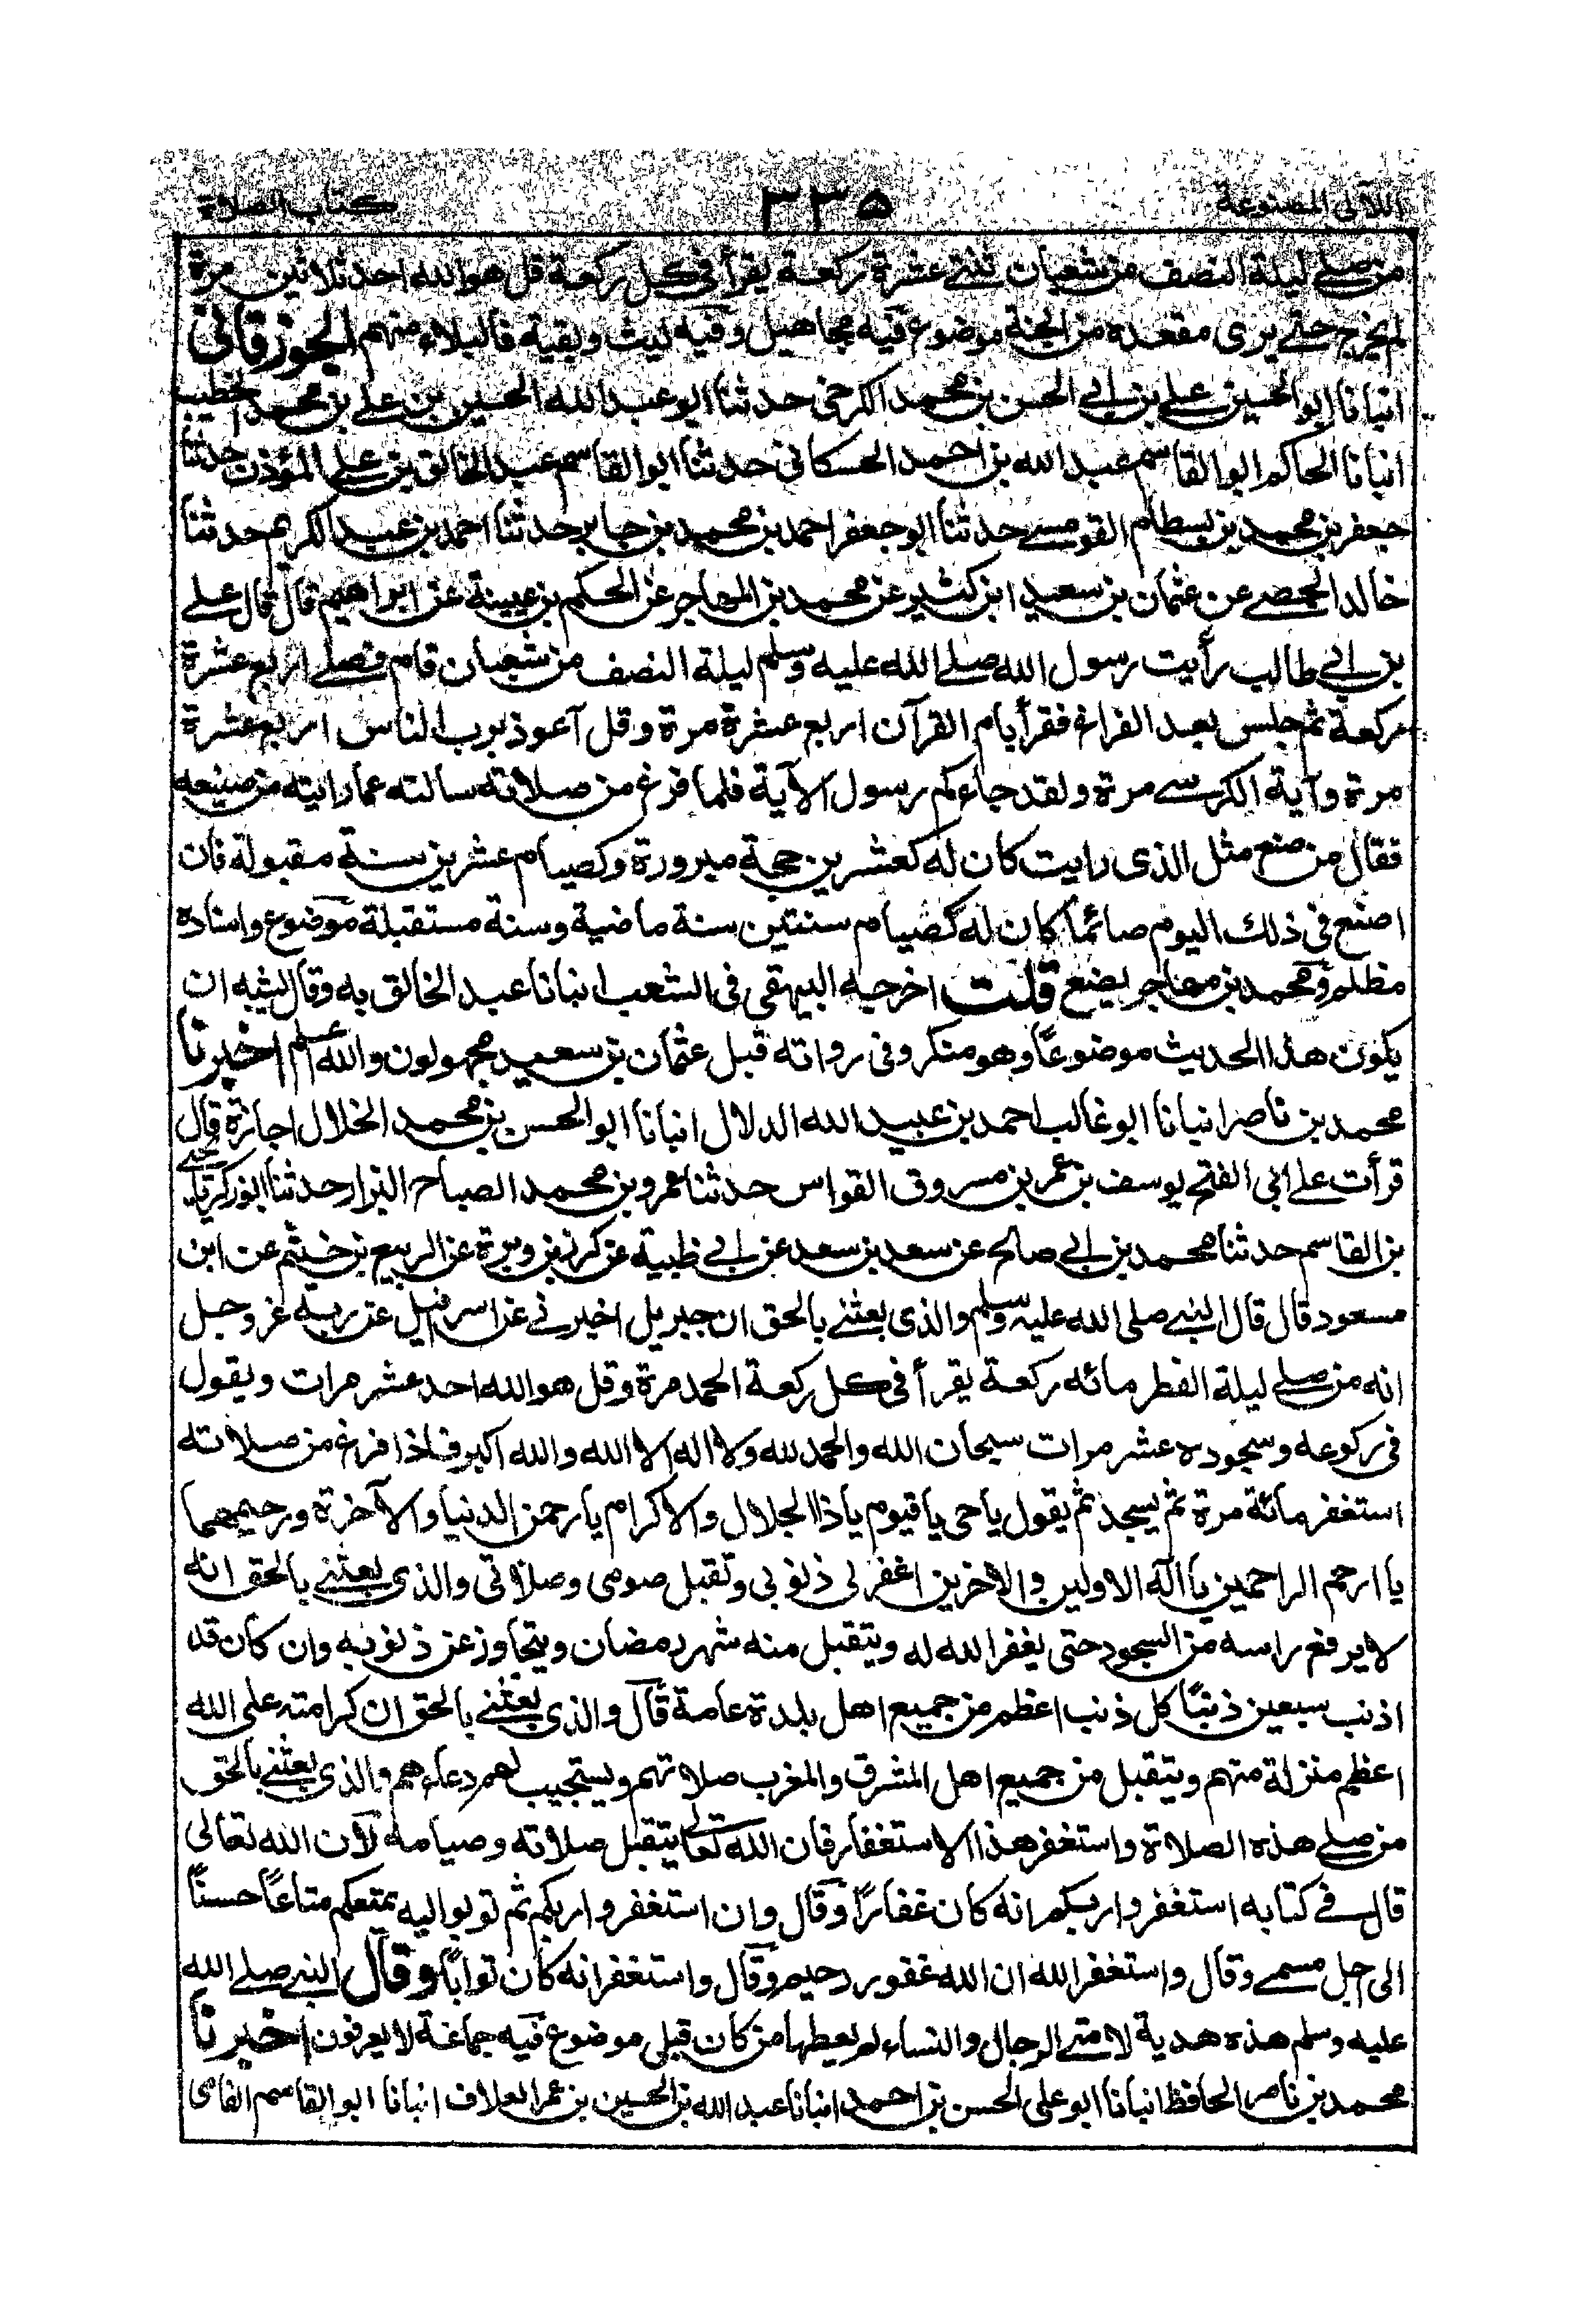 اللآلى المصنوعة ٣٣٥ كتاب الصلاة
من صلے ليلة النصف من شعبان ثنتے عشرة ركعة يقرأ فى كل ركعة قل هو الله احد ثلاثين مرة
لم يخرج حتے يرى مقعده من الجنة موضوع فيه مجاهيل وفيه ليث وبقية فالبلاء منهم الجوزقانى
انبانا ابو الحسين علے بن ابے الحسن بن محمد الكرخى حدثنا ابو عبد الله الحسين بن علے بن محمد الخطيب
انبانا الحاكم ابو القاسم عبد الله بن احمد الحسكانى حدثنا ابو القاسم عبد الخالق بن علے المؤذن حدثنا
جعفر بن محمد بن بسطام القومسے حدثنا ابو جعفر احمد بن محمد بن جابر حدثنا احمد بن عبد الكريم حدثنا
خالد الحمصے عن عثمان بن سعيد ابن كثير عن محمد بن المهاجر عن الحكم بن عيينة عن ابراهيم قال قال علے
بن ابے طالب رأيت رسول الله صلے الله عليه وسلم ليلة النصف من شعبان قام فصلے اربع عشرة
ركعة ثم جلس بعد الفراغ فقرأ بام القرآن اربع عشرة مرة وقل آعوذ برب الناس اربع عشرة
مرة وآية الكرسے مرة ولقد جاءكم رسول الآية فلما فرغ من صلاته سالته عما رايته من صنيعه
فقال من صنع مثل الذى رايت كان له كعشرين حجة مبرورة وكصيام عشرين سنة مقبولة فان
اصبح فى ذلك اليوم صائما كان له كصيام سنتين سنة ماضية وسنة مستقبلة موضوع واسناده
مظلم ومحمد بن مهاجر يضع قلت اخرجه البيهقى فى الشعب انبانا عبد الخالق به وقال يشبه ان
يكون هذا الحديث موضوعًا وهو منكر وفى رواته قبل عثمان بن سعيد مجهولون والله اعلم اخبرنا
محمد بن ناصر انبانا ابو غالب احمد بن عبيد الله الدلال انبانا ابو الحسن بن محمد الخلال اجازة قال
قرأت على ابى الفتح يوسف بن عمر بن مسروق القواس حدثنا عمرو بن محمد الصباح البزار حدثنا ابو زكريا يحيے
بن القاسم حدثنا محمد بن ابے صالح عن سعد بن سعد عن ابے ظبية عن كرز بن وبرة عن الربيع بن خيثم عن ابن
مسعود قال قال النبے صلى الله عليه وسلم والذى بعثنے بالحق ان جبريل اخبرنے عن اسرافيل عن ربه عز وجل
انه من صلے ليلة الفطر مائه ركعة يقرأ فى كل ركعة الحمد مرة وقل هو الله احد عشر مرات ويقول
فى ركوعه وسجوده عشر مرات سبحان الله والحمد لله ولا اله الا الله والله اكبر فاذا فرغ من صلاته
استغفر مائة مرة ثم يسجد ثم يقول ياحى ياقيوم ياذا الجلال والاكرام يارحمن الدنيا والآخرة ورحيمهما
يا ارحم الراحمين يا اله الاولين والاخرين اغفر لى ذنوبى وتقبل صومى وصلاتى والذى بعثنے بالحق انه
لا يرفع راسه من السجود حتى يغفر الله له ويتقبل منه شهر رمضان ويتجاوز عن ذنوبه وان كان قد
اذنب سبعين ذنبًا كل ذنب اعظم من جميع اهل بلدة عامة قال والذى بعثنے بالحق ان كرامته على الله
اعظم منزلة منهم ويتقبل من جميع اهل المشرق والمغرب صلاتهم ويستجيب لهم دعاءهم والذى بعثنے بالحق
من صلے هذه الصلاة واستغفر هذا الاستغفار فان الله تعالے يتقبل صلاته وصيامه لأن الله تعالى
قال فے كتابه استغفروا ربكم انه كان غفارًا وقال وان استغفروا ربكم ثم توبوا اليه يمتعكم متاعًا حسنًا
الى اجل مسمے وقال واستغفر الله ان الله غفور رحيم وقال واستغفرانه كان توابًا وقال النبے صلے الله
عليه وسلم هذه هدية لامتے الرجال والنساء لم يعطها من كان قبلى موضوع فيه جماعة لا يعرفون اخبرنا
محمد بن ناصر الحافظ انبانا ابو على الحسن بن احمد انبانا عبد الله بن الحسين بن عمر العلاف انبانا ابو القاسم الفامى